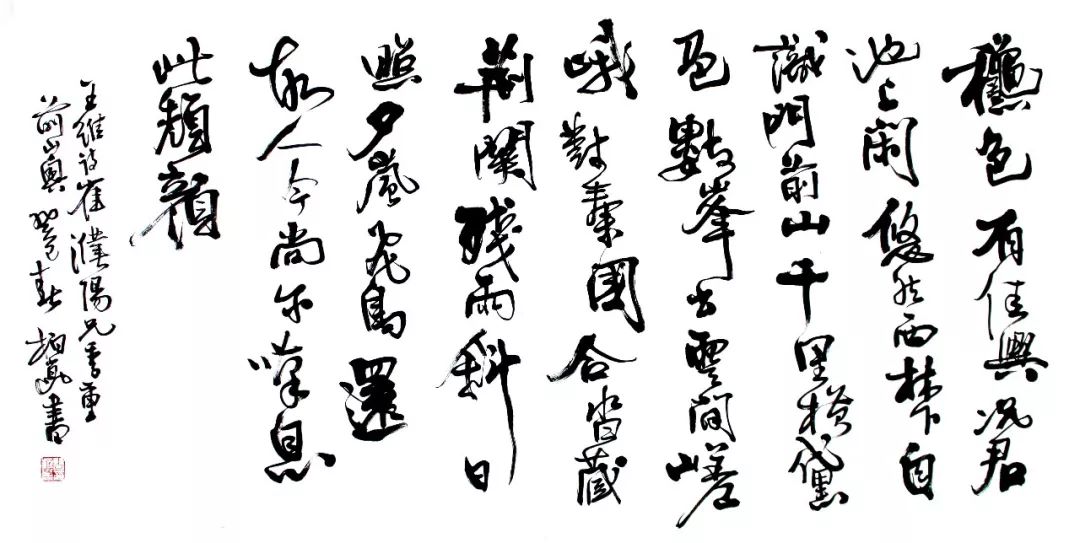 龝色有佳興況君
池上闲悠然西林下自
識門前山千里横黛
色數峯出雲間嵯
峨對秦國合沓藏
荆關殘雨斜日
照夕嵐飛鳥還
故人今尚尔嘆息
此頹顔
王維詩崔濮陽兄季重
前山興 癸巳春 書